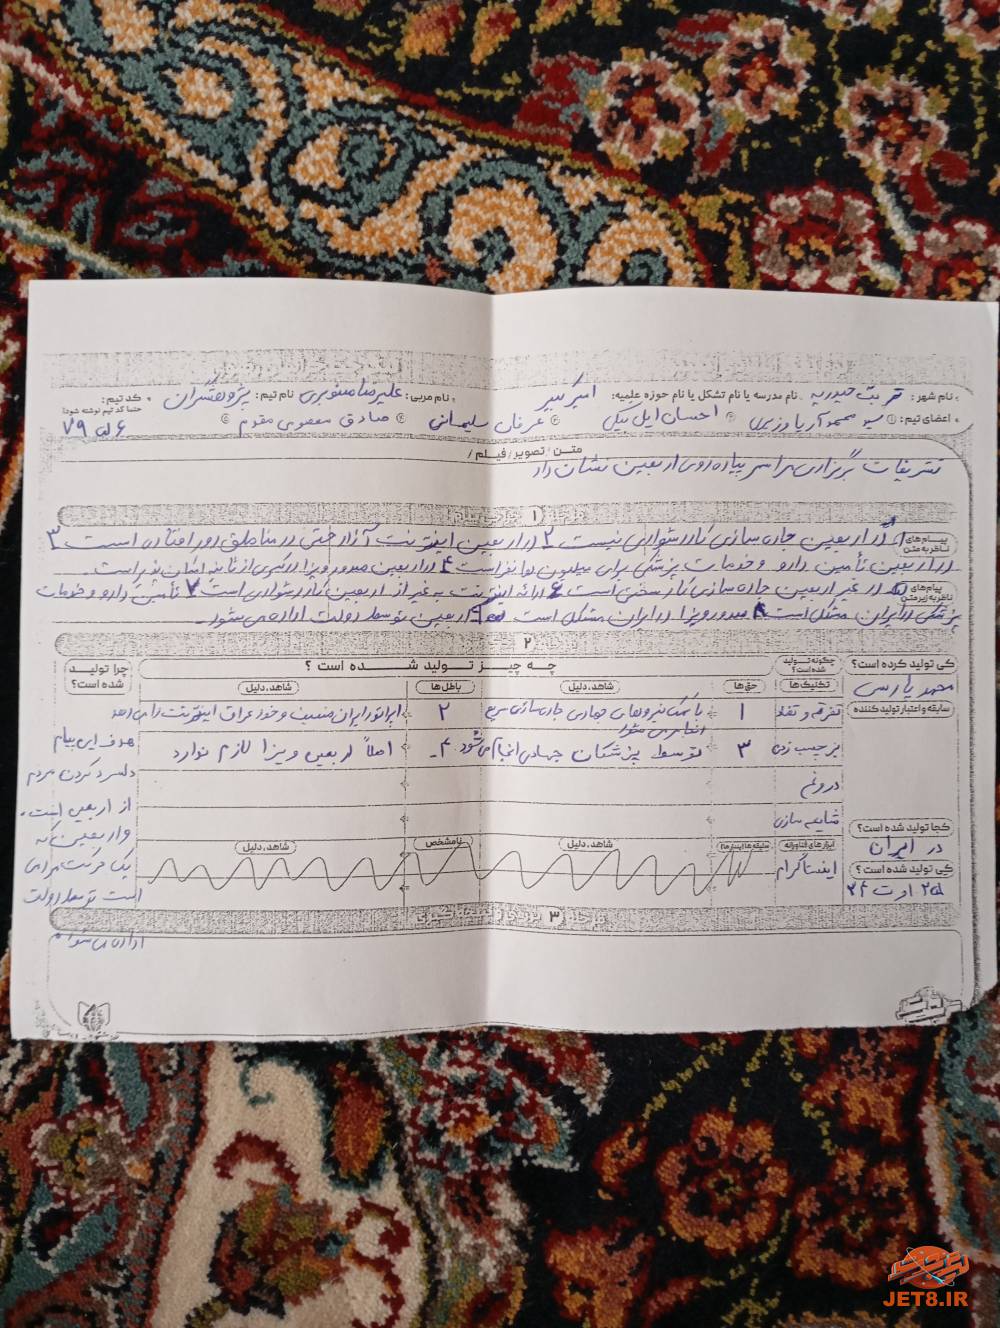 نام شهر: تربت حیدریه نام مدرسه یا نام تشکل یا نام حوزه علمیه: امیرکبیر نام مربی: علیرضا منوبری نام تیم: پژوهشگران کد تیم:
حتما کد تیم نوشته شود
اعضای تیم: ① سید محمد آریا ② احسان ایل بیگی ③ عرفان سلیمانی ④ صادق معصومی مقدم
متن / تصویر / فیلم /
تشریفات برگزاری مراسم پیاده روی اربعین نشان داد
مرحله 1
پیام‌های ناظر به متن
1 در اربعین جاده سازی کار دشواری نیست 2 در اربعین اینترنت آزاد حتی در مناطق دور افتاده است 3
در اربعین تأمین دارو و خدمات پزشکی برای میلیون ها نفر است 4 در اربعین صدور ویزا در کسری از ثانیه امکان پذیر است.
پیام‌های ناظر به زیر متن
در غیر اربعین جاده سازی کار سختی است 6 ارائه اینترنت به غیر از اربعین کار دشواری است 7 تأمین دارو و خدمات
پزشکی در ایران مشکل است 8 صدور ویزا در ایران مشکل است 9 اربعین توسط دولت اداره می شود.
2
کی تولید کرده است؟ چگونه تولید شده است؟ چه چیز تولید شده است؟ چرا تولید شده است؟
تکنیک‌ها حق‌ها شاهد، دلیل باطل‌ها شاهد، دلیل
محمد پارسی
سابقه و اعتبار تولید کننده
تفرقه و تضاد 1 با کمک نیروهای جهادی جاده سازی سریع انجام می شود 2 اپراتور ایران نیست و خود عراق اینترنت را می دهد
برچسب زدن 3 توسط پزشکان جهادی انجام می شود 4 اصلاً اربعین ویزا لازم ندارد
هدف این پیام
دلسرد کردن مردم
دروغ
از اربعین است.
شایعه سازی
و اربعین که
کجا تولید شده است؟
در ایران
ابزارهای فناورانه شاهد، دلیل نامشخص شاهد، دلیل
اینستاگرام
یک حرکت مردمی
کی تولید شده است؟
است توسط دولت
25 اوت 24
مرحله 3 بررسی و نتیجه گیری
اداره می شود
JET8.IR